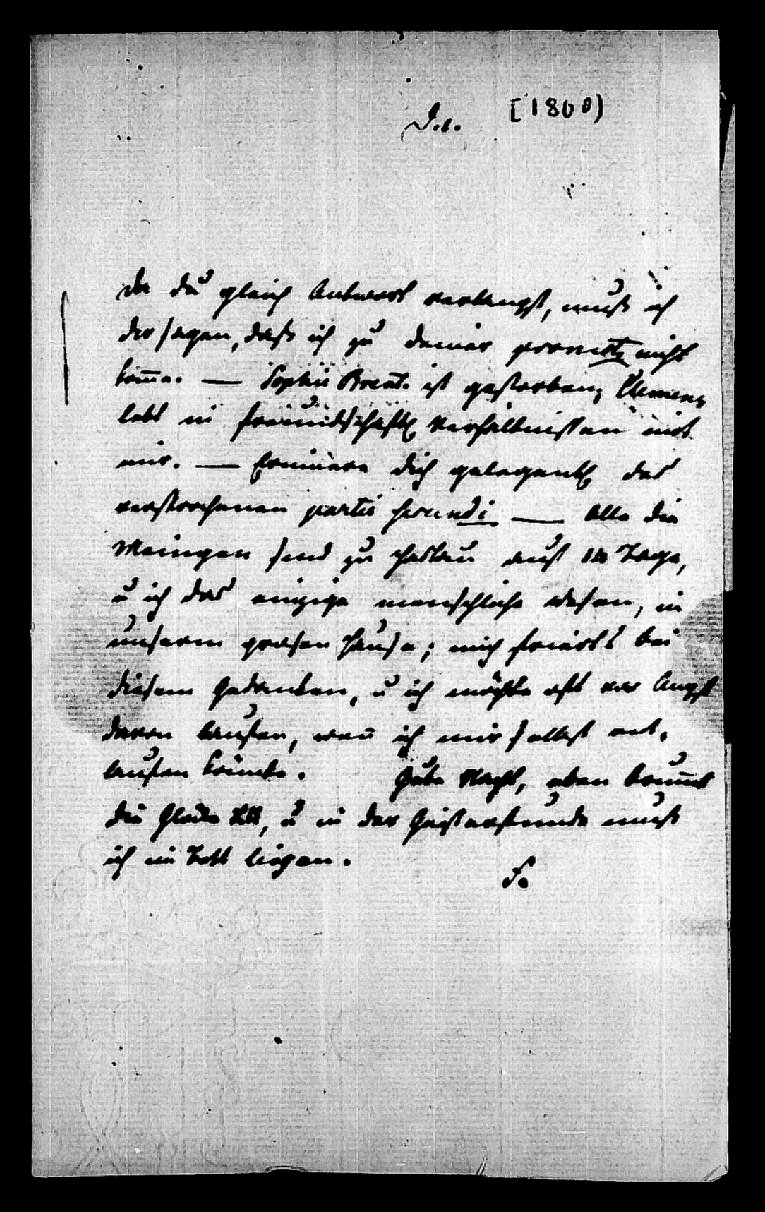 D. 6. [1800)
da du gleich Antwort verlangst, muß ich
dir sagen, daß ich zu deiner nicht
kom̄e. — Sophie Brent. ist gestorben, Clemenz
lebt in freundschaftl Verhältnissen mit
mir. — Erinnere dich gelegentl des
versprochenen — Alle die
Meinigen sind zu Hanau auf 14 Tage,
u ich das einzige menschliche Wesen, in
unserm grosen Hause; mich friert's bei
diesem Gedanken, u ich möchte oft vor Angst
davon laufen, wen̄ ich mir selbst ent-
laufen könnte. Gute Nacht, eben brum̄t
die Glocke XII, u in der Geisterstunde muß
ich im Bett liegen.
F.